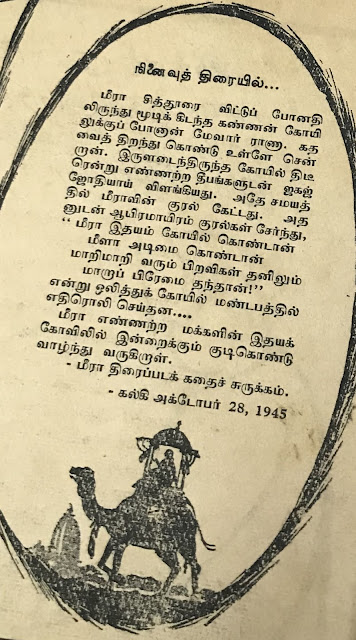 நினைவுத் திரையில்...
மீரா சித்தூரை விட்டுப் போனதி
லிருந்து மூடிக் கிடந்த கண்ணன் கோயி
லுக்குப் போனான் மேவார் ராணா. கத
வைத் திறந்து கொண்டு உள்ளே சென்
றான். இருளடைந்திருந்த கோயில் திடீ
ரென்று எண்ணற்ற தீபங்களுடன் ஜகஜ்
ஜோதியாய் விளங்கியது. அதே சமயத்
தில் மீராவின் குரல் கேட்டது. அத
னுடன் ஆயிரமாயிரம் குரல்கள் சேர்ந்து,
“ மீரா இதயம் கோயில் கொண்டான்
மீளா அடிமை கொண்டான்
மாறிமாறி வரும் பிறவிகள் தனிலும்
மாறாப் பிரேமை தந்தான்!”
என்று ஒலித்துக் கோயில் மண்டபத்தில்
எதிரொலி செய்தன....
மீரா எண்ணற்ற மக்களின் இதயக்
கோவிலில் இன்றைக்கும் குடிகொண்டு
வாழ்ந்து வருகிறாள்.
- மீரா திரைப்படக் கதைச் சுருக்கம்.
- கல்கி அக்டோபர் 28, 1945